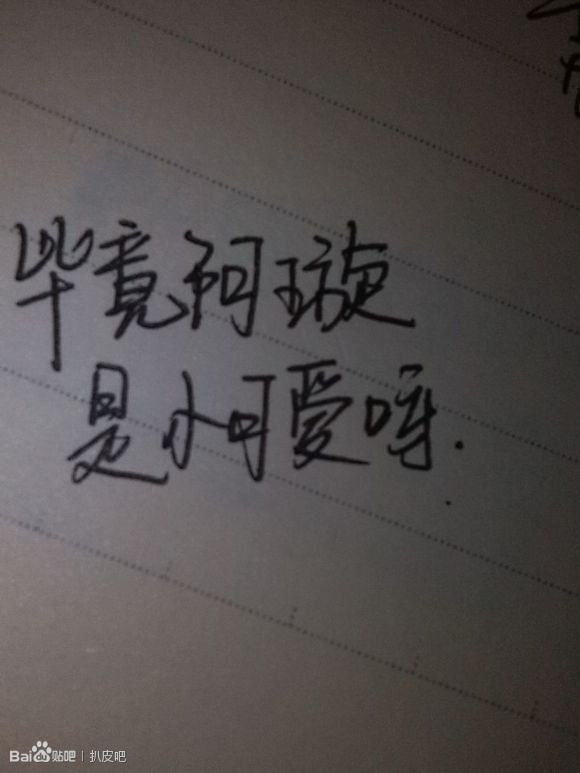 毕竟阿璇
是小可爱呀.
Bai贴吧 | 扒皮吧